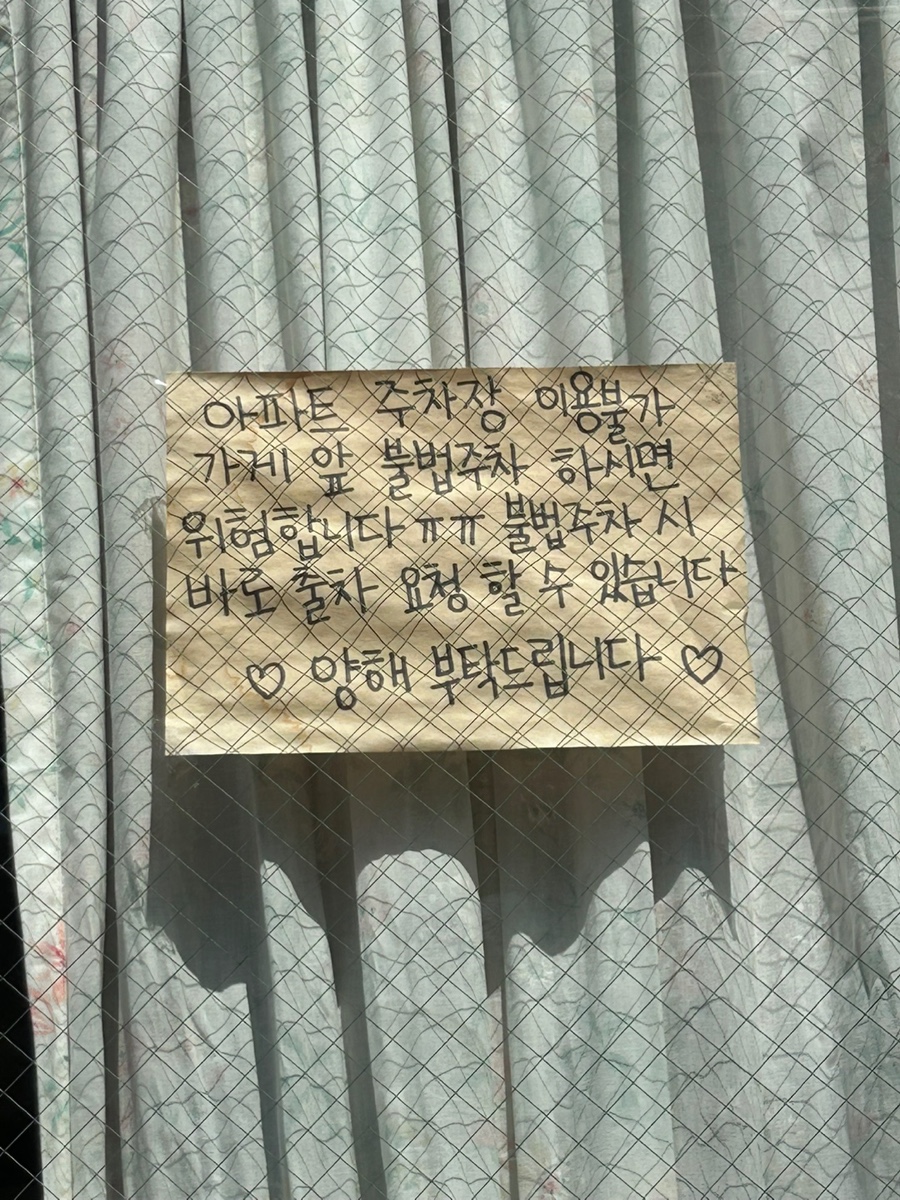 아파트 주차장 이용불가
가게 앞 불법주차 하시면
위험합니다 ㅠㅠ 불법주차 시
바로 출차 요청 할 수 있습니다
♡ 양해 부탁드립니다 ♡